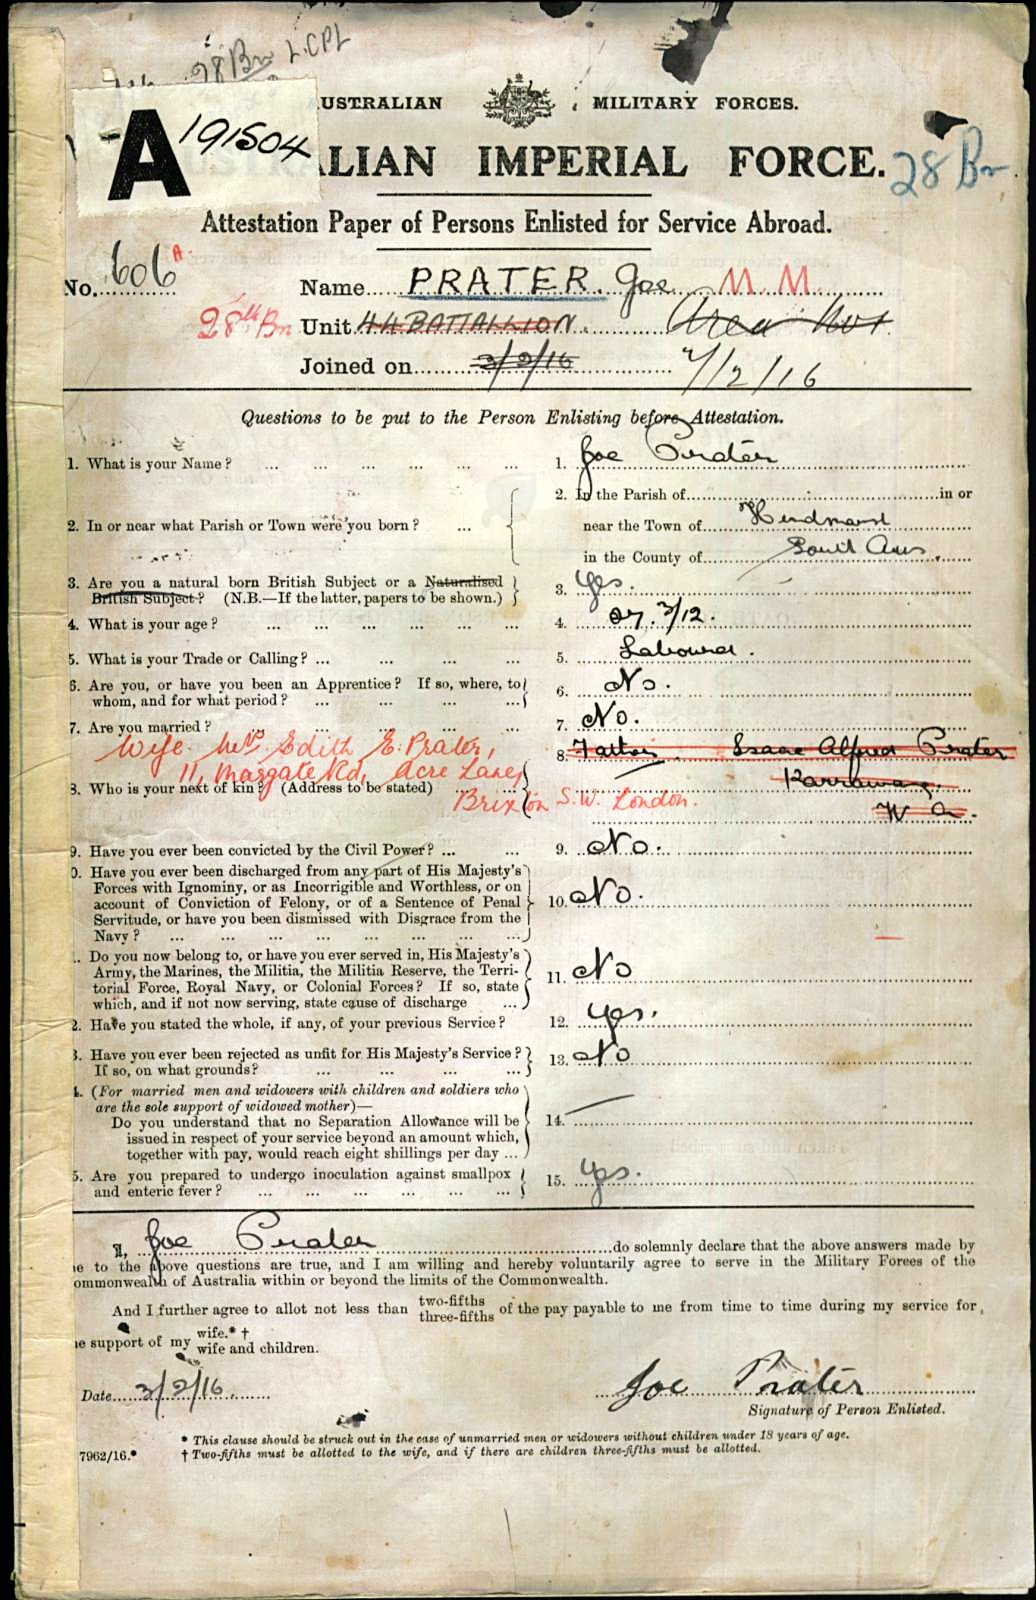 28 Bn L.CPL
AUSTRALIAN MILITARY FORCES.
A 191504
ALIAN IMPERIAL FORCE. 28 Bn
Attestation Paper of Persons Enlisted for Service Abroad.
No. 606 A. Name PRATER. Joe M.M.
28th Bn Unit 44 BATTALLION.
Joined on 3/2/16 7/2/16
Questions to be put to the Person Enlisting before Attestation.
1. What is your Name? ... 1. Joe Prater
2. In the Parish of ... in or
2. In or near what Parish or Town were you born? ... near the Town of Hindmarsh
in the County of South Aus.
3. Are you a natural born British Subject or a Naturalised
British Subject? (N.B.—If the latter, papers to be shown.) 3. Yes.
4. What is your age? ... 4. 27. 3/12.
5. What is your Trade or Calling? ... 5. Labourer.
6. Are you, or have you been an Apprentice? If so, where, to
whom, and for what period? ... 6. No.
7. Are you married? 7. No.
Wife. Mrs. Edith E. Prater, 8. Father Isaac Alfred Prater
11, Margate Rd, Acre Lane, Karrawang.
8. Who is your next of kin? (Address to be stated) ...
Brixton S.W. London. W A.
9. Have you ever been convicted by the Civil Power? ... 9. No.
0. Have you ever been discharged from any part of His Majesty's
Forces with Ignominy, or as Incorrigible and Worthless, or on
account of Conviction of Felony, or of a Sentence of Penal 10. No.
Servitude, or have you been dismissed with Disgrace from the
Navy? ...
. Do you now belong to, or have you ever served in, His Majesty's
Army, the Marines, the Militia, the Militia Reserve, the Terri-
torial Force, Royal Navy, or Colonial Forces? If so, state 11. No
which, and if not now serving, state cause of discharge ...
2. Have you stated the whole, if any, of your previous Service? 12. Yes.
3. Have you ever been rejected as unfit for His Majesty's Service? 13. No
If so, on what grounds? ...
4. (For married men and widowers with children and soldiers who
are the sole support of widowed mother)—
Do you understand that no Separation Allowance will be 14. —
issued in respect of your service beyond an amount which,
together with pay, would reach eight shillings per day ...
5. Are you prepared to undergo inoculation against smallpox
and enteric fever? ... 15. Yes.
I, Joe Prater do solemnly declare that the above answers made by
e to the above questions are true, and I am willing and hereby voluntarily agree to serve in the Military Forces of the
ommonwealth of Australia within or beyond the limits of the Commonwealth.
And I further agree to allot not less than two-fifths three-fifths of the pay payable to me from time to time during my service for
e support of my wife.* † wife and children.
Date 3/2/16. Joe Prater
Signature of Person Enlisted.
* This clause should be struck out in the case of unmarried men or widowers without children under 18 years of age.
7962/16.* † Two-fifths must be allotted to the wife, and if there are children three-fifths must be allotted.